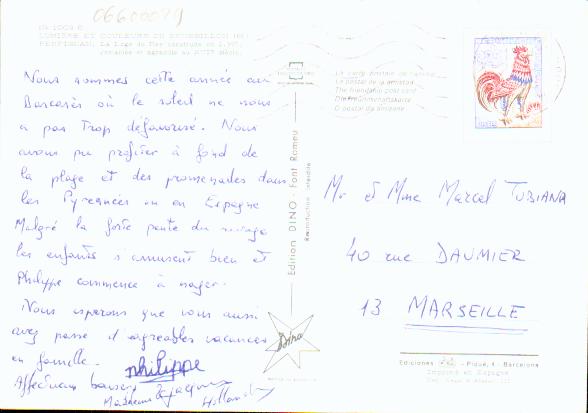 06600029
LUMIÈRE ET COULEURS DU ROUSSILLON
PERPIGNAN. La Loge de Mer construite en 1397,
remaniée et agrandie au XVIe siècle.
Nous sommes cette année au
Barcarès où le soleil ne nous
a pas trop défavorisé. Nous
avons pu profiter à fond de
la plage et des promenades dans
les Pyrennées ou en Espagne
Malgré la forte pente du rivage
les enfants s'amusent bien et
Philippe commence à nager.
Nous esperons que vous aussi
avez passe d'agreables vacances
en famille.
philippe
Affectueux baisers
Edition DINO - Font Romeu
Reproduction interdite
Dino
La carte postale de l'amitié
La postal de la amistad
The friendship post card
Die Freundschaftskarte
O postal da amizade
Mr et Mme Marcel TUBIANA
40 rue DAUMIER
13 MARSEILLE
Ediciones - Piqué, 4 - Barcelona
Imprimé en Espagne